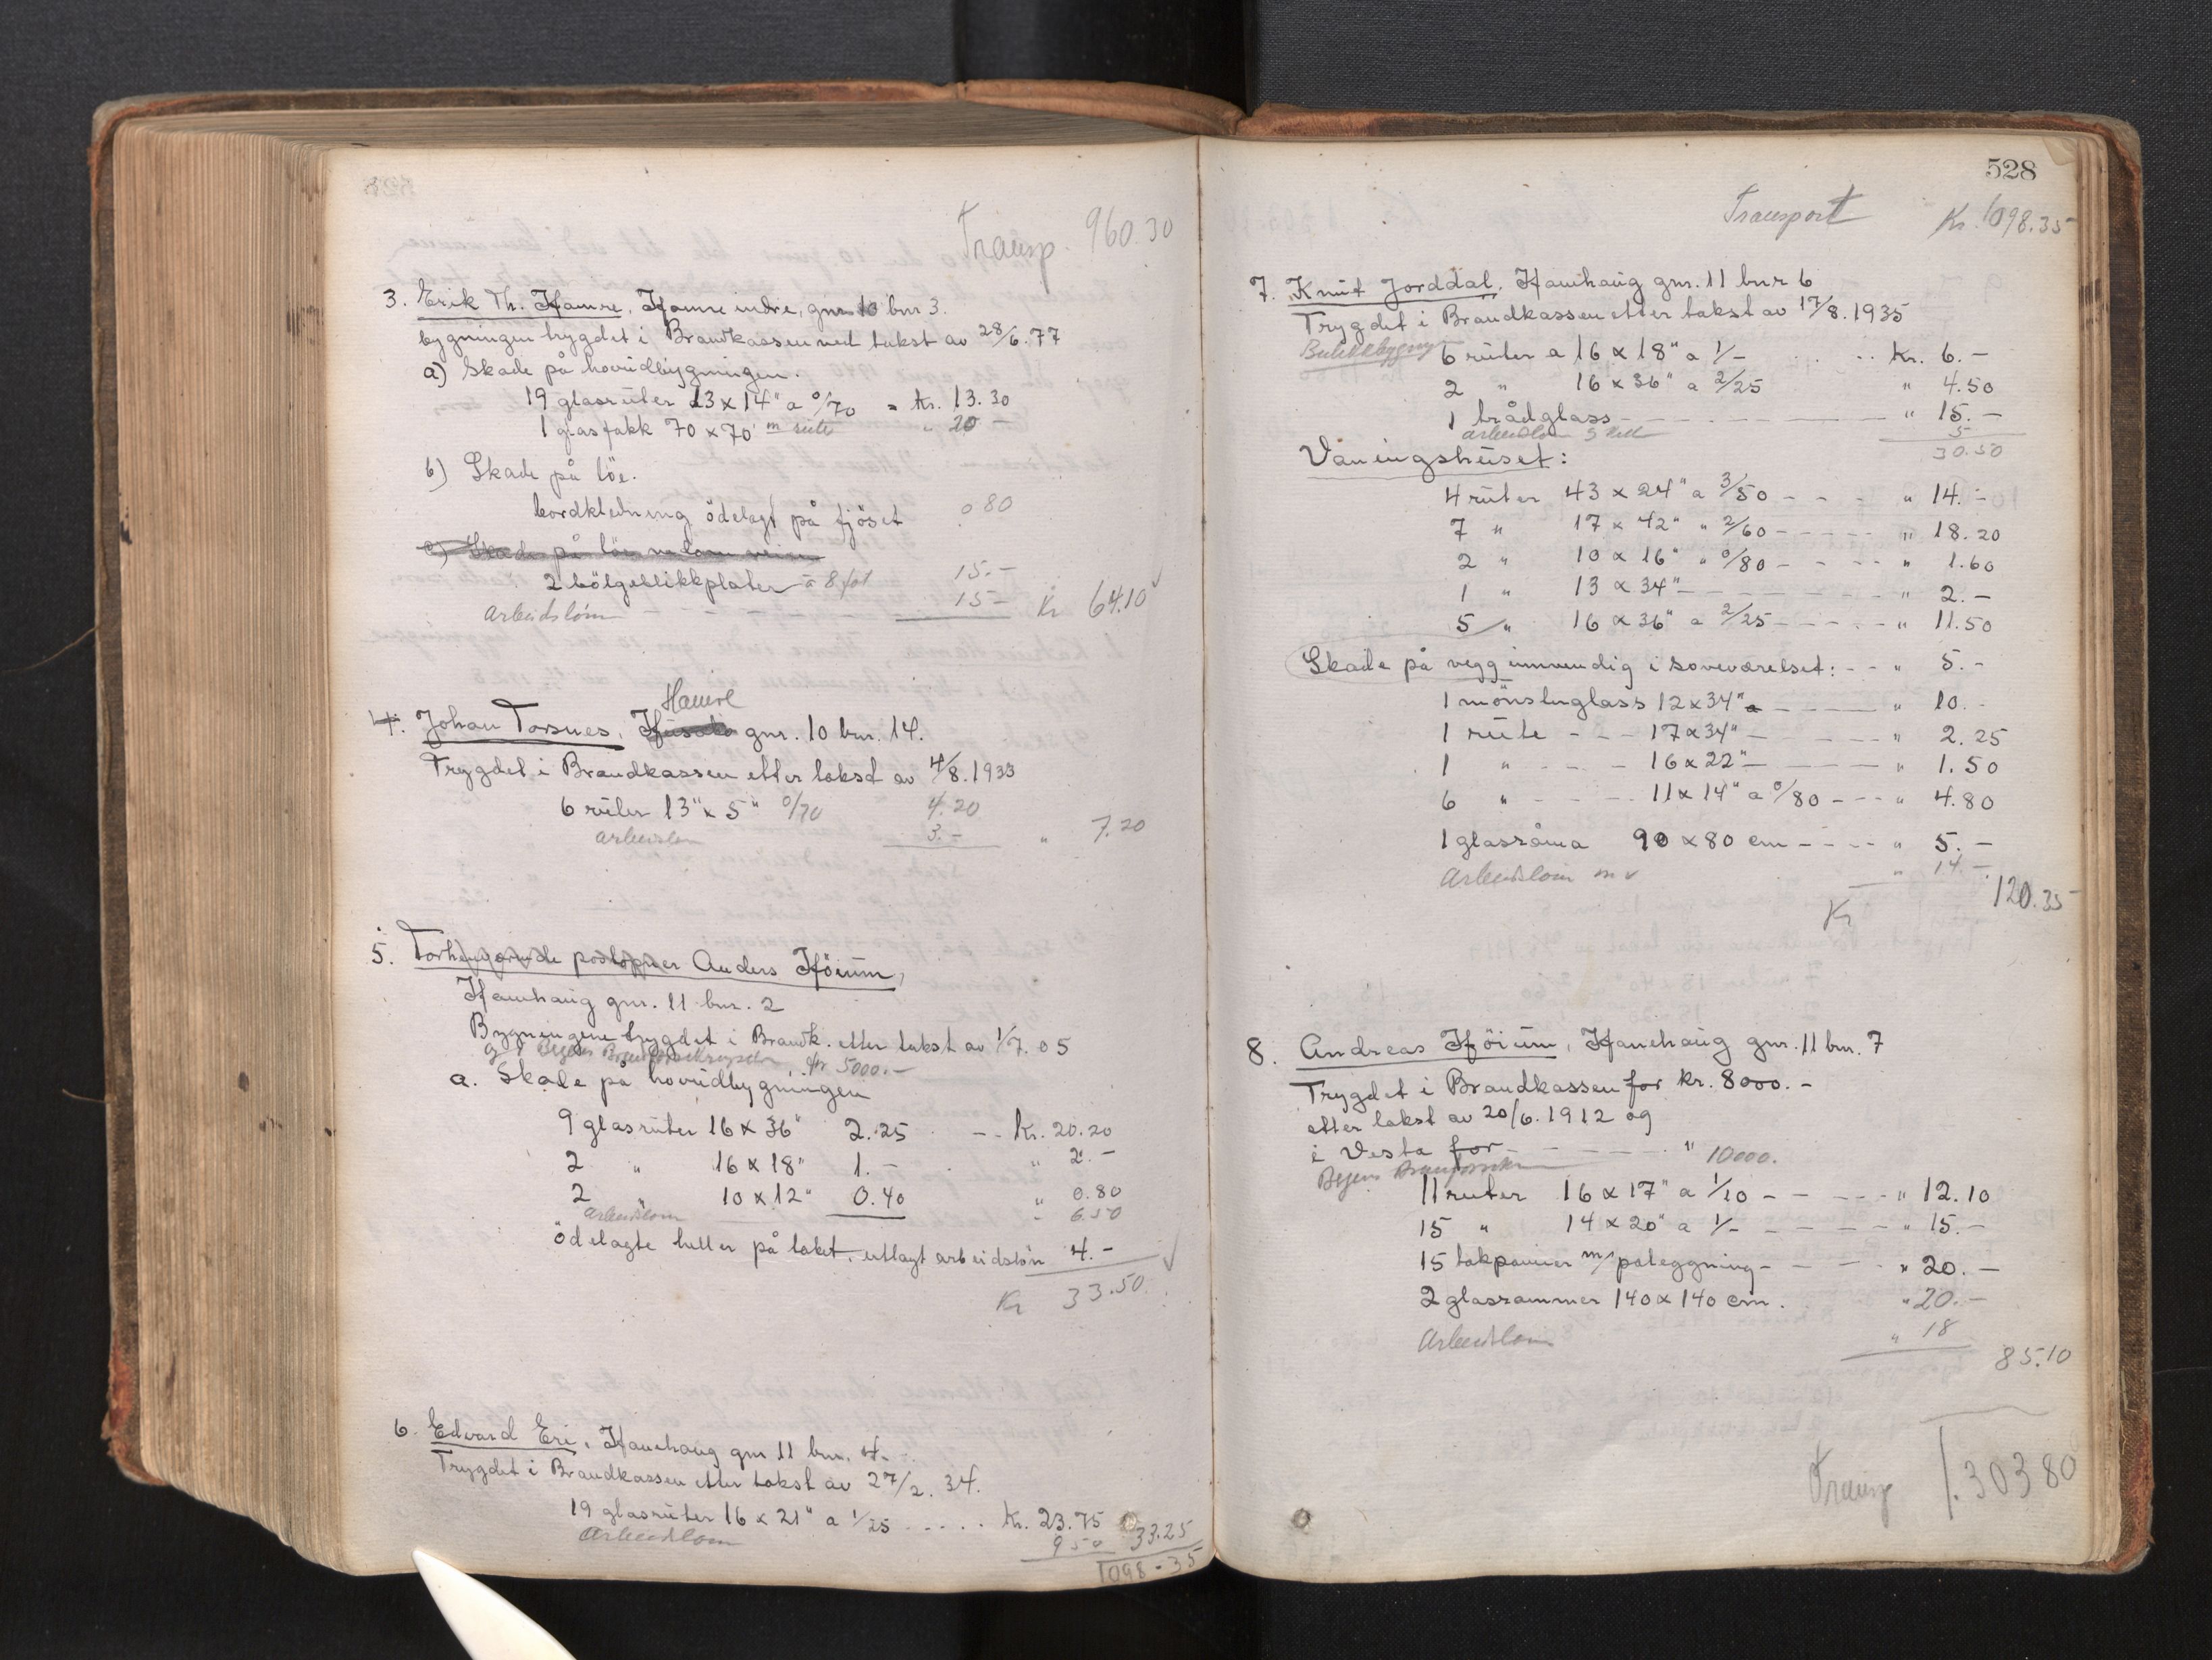 Transp. 960.30
3. Erik Th. Hamre, Hamre indre, gnr 10 bnr 3.
bygningen trygdet i Brandkassen ved takst av 28/6.77
a) Skade på hovudbygningen.
19 glasruter 13 x 14" a 0/70 = Kr. 13.30
1 glasfakk 70 x 70 m rute " 20 –
b) Skade på löe.
bordkledning ödelagt på fjöset 0 80
c) Skade på löe
2 bölgeblikkplater à 8 fot 15.–
Arbeidslönn 15 – Kr 64.10
Hamre
4. Johan Torsnes, gnr. 10 bnr. 14.
Trygdet i Brandkassen etter takst av 4/8.1933
6 ruter 13" x 5" 0/70 4.20
Arbeidslön 3.– " 7.20
5. Anders Höium,
Hamhaug gnr. 11 bnr. 2
Bygningene trygdet i Brandk. etter takst av 1/7.05
Kr 5000.–
a. Skade på hovudbygningen
9 glasruter 16 x 36" 2.25 -- Kr. 20.20
2 " 16 x 18" 1.– " 2.–
2 " 10 x 12" 0.40 " 0.80
Arbeidslön " 6.50
ödelagte heller på taket, utlagt arbeidslön 4.–
Kr 33.50
6. Edvard Eri, Hamhaug gnr 11 bnr. 4.
Trygdet i Brandkassen etter takst av 27/2. 34.
19 glasruter 16 x 21" a 1/25 ..... Kr. 23.75
Arbeidslön 9 50 33.25
1098 - 35
528
Transport Kr. 1098.35
7. Knut Jorddal, Hamhaug gnr. 11 bnr 6
Trygdet i Brandkassen etter takst av 17/8. 1935
Butikkbygning 6 ruter a 16 x 18" a 1/– .... Kr. 6.–
2 " 16 x 36" a 2/25 " 4.50
1 trådglass – – – " 15.–
Arbeidslön 5
30.50
Vaningshuset:
4 ruter 43 x 24" a 3/50 - - - " 14.–
7 " 17 x 42" " 2/60 - - - - - " 18.20
2 " 10 x 16" " 0/80 - - - - " 1.60
1 " 13 x 34" - - - - - " 2.–
5 " 16 x 36" a 2/25 - - - - - " 11.50
Skade på vegg innvendig i soveværelset: - - " 5.–
1 mönsterglass 12 x 34" - - - " 10.–
1 rute - - - 17 x 34" - - - - " 2.25
1 " - - - 16 x 22" - - - " 1.50
6 " - - - 11 x 14" a 0/80 - - - " 4.80
1 glasråma 90 x 80 cm - - - - " 5.–
Arbeidslön m v " 14.–
Kr 120.35
8. Andreas Höium, Hamehaug gnr. 11 bnr. 7
Trygdet i Brandkassen for kr. 8000.–
etter takst av 20/6. 1912 og
i Vesta for - - - - - " 10000.
11 ruter 16 x 17" a 1/10 - - - - - " 12.10
15 " 14 x 20" a 1/– - - - - - " 15.–
15 takpanner m/ pålegging - - - - " 20.–
2 glasrammer 140 x 140 cm. " 20.–
Arbeidslön " 18
85.10
Transp 1.303 80